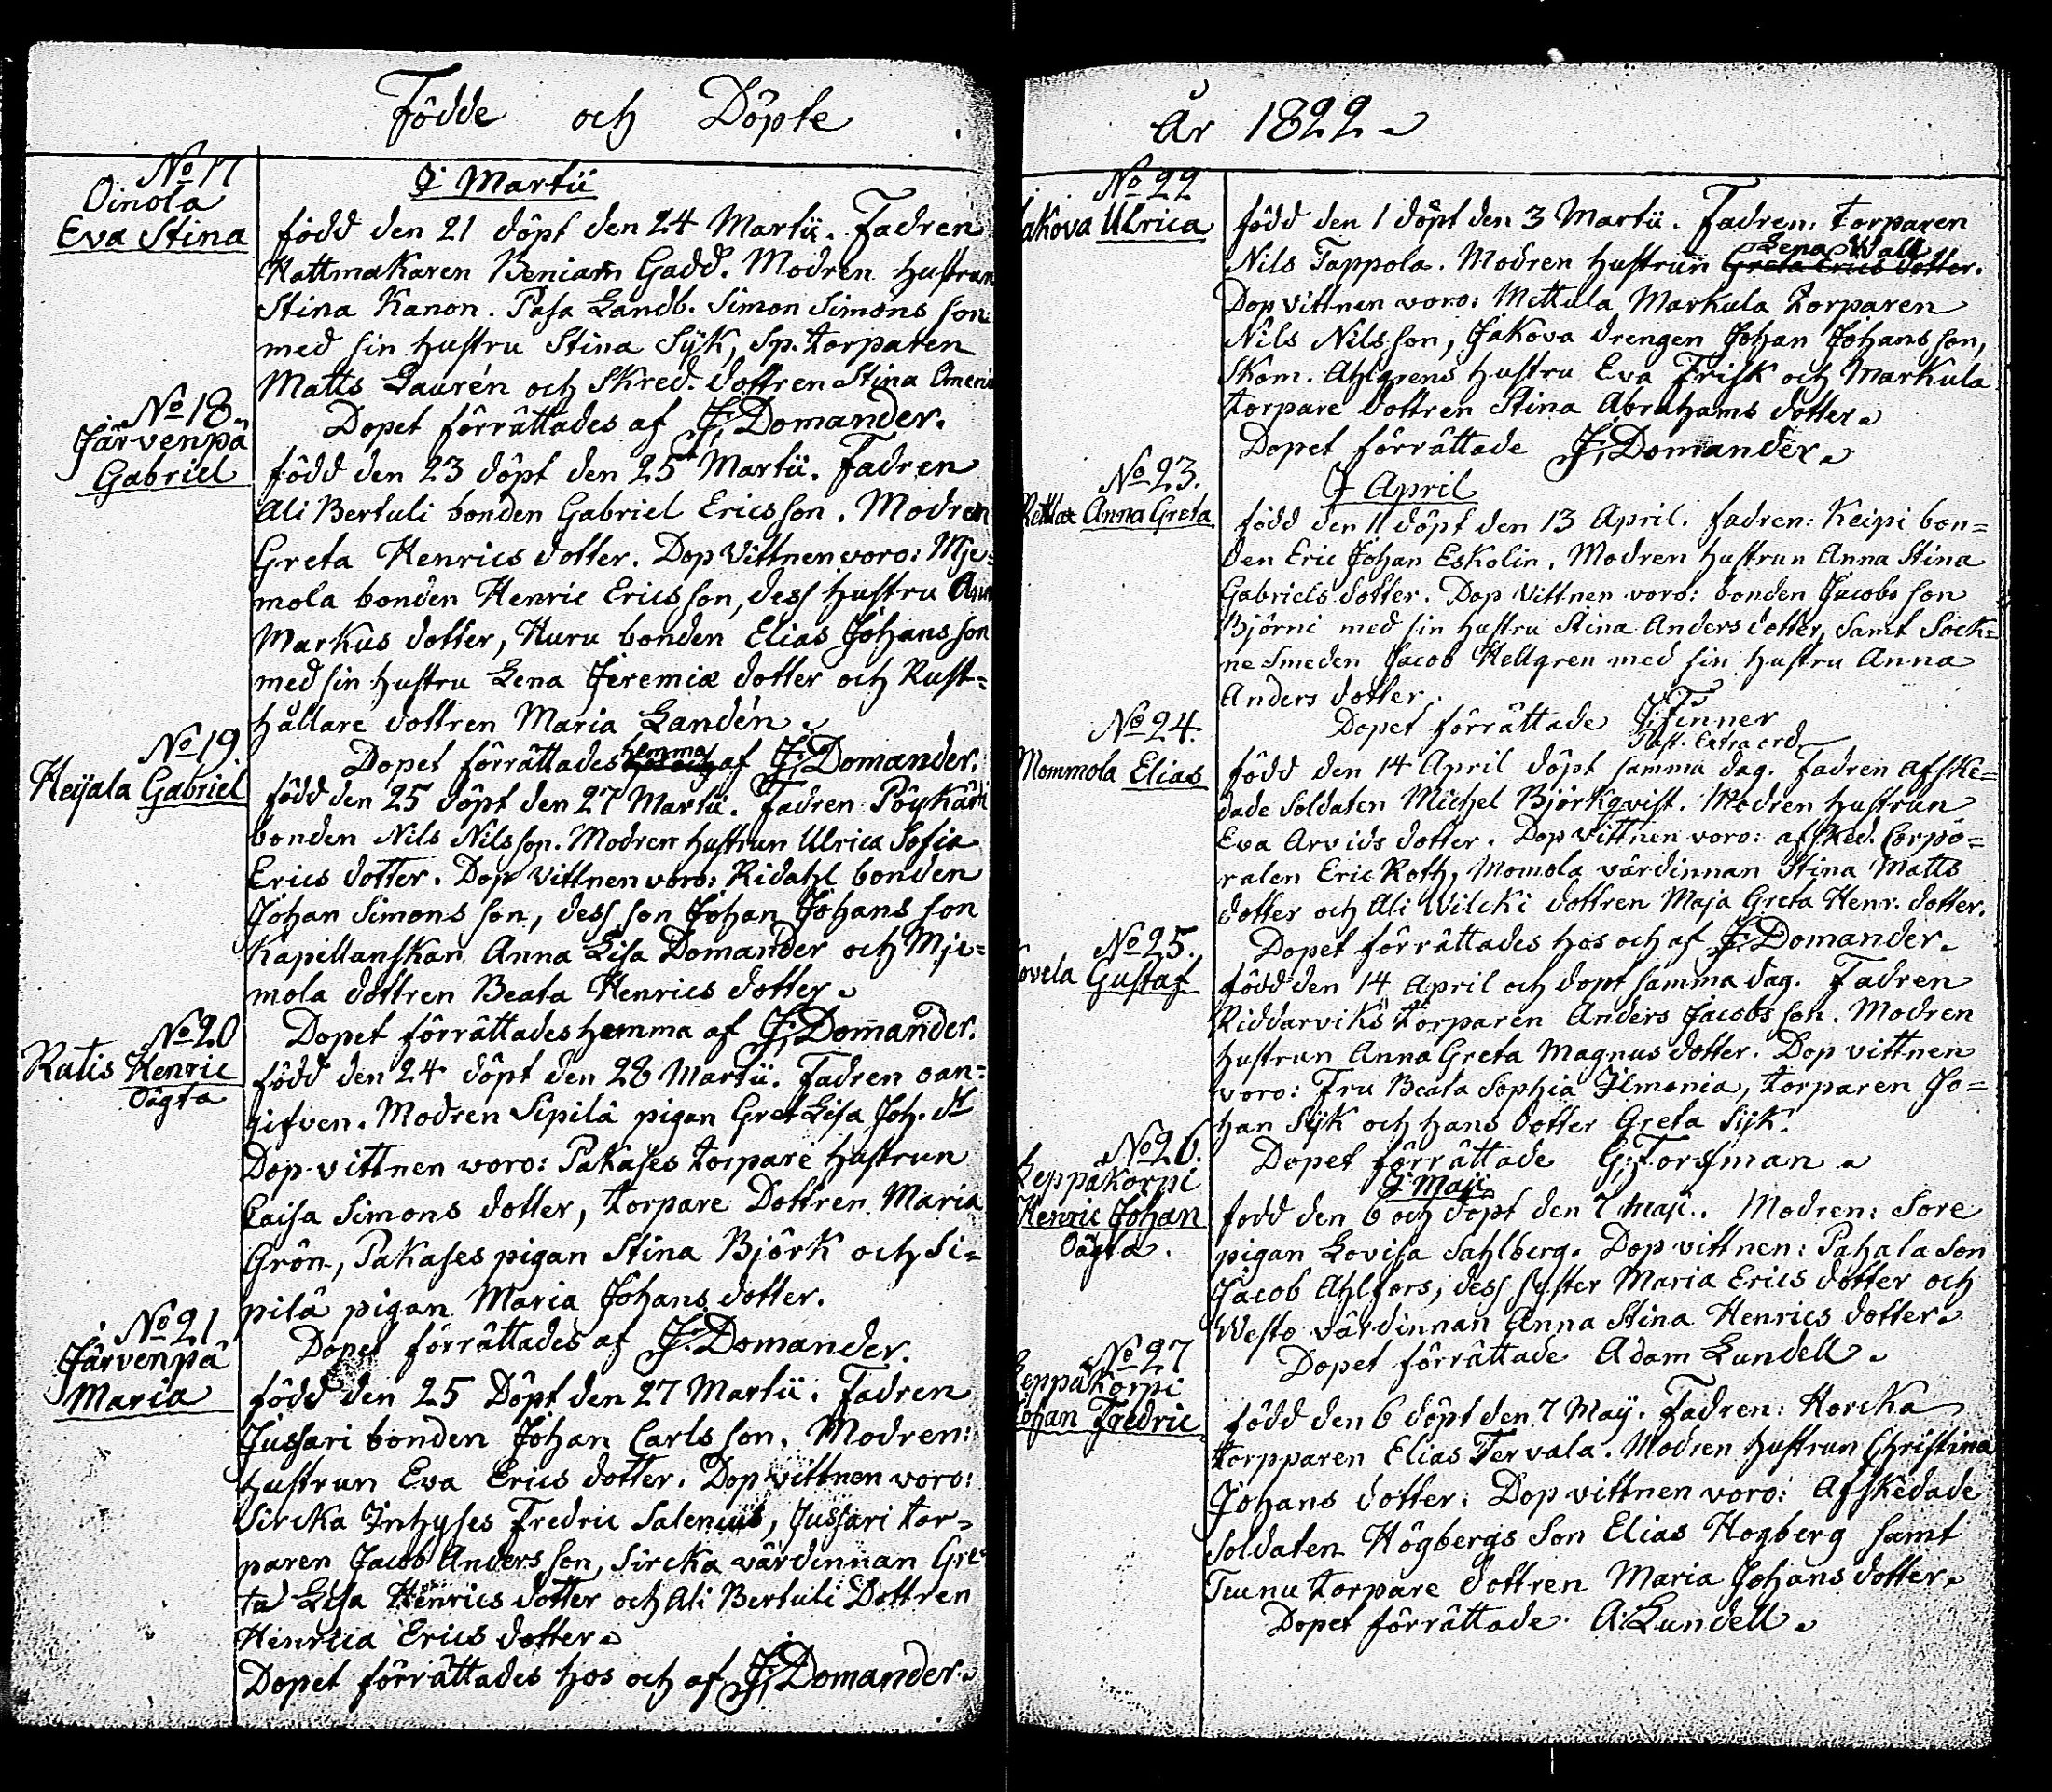 Födde och Döpte
No 17
Oinola
Eva Stina
I Martii
född den 21 döpt den 24 Martii. Fadren
Hattmakaren Beniam Gadd. Modren hustrun
Stina Kanon. Pasa Landb. Simon Simons son
med sin hustru Stina Sÿk, Sp. torparen
Matts Laurén och Skred. dottren Stina
Dopet förrättades af J. Domander.
No 18
Järvenpä
Gabriel
född den 23 döpt den 25 Martii. Fadren
Ali Bertuli bonden Gabriel Ericsson. Modren
Greta Henrics dotter. Dop Vittnen voro: Mje-
mola bonden Henric Ericsson, dess hustru
Markus dotter, Huru bonden Elias Johansson
med sin hustru Lena Jeremiæ dotter och Rust-
hållare dottren Maria Landén
Dopet förrättades hemma af J. Domander.
No 19
Heijala Gabriel
född den 25 döpt den 27 Martii. Fadren
bonden Nils Nilsson. Modren hustrun Ulrica Sofia
Erics dotter. Dop Vittnen voro: Ridahl bonden
Johan Simons son, dess son Johan Johans son
Kapellanskan Anna Lisa Domander och Mje-
mola dottren Beata Henrics dotter
Dopet förrättades hemma af J. Domander.
No 20
Ratis Henric
Oägta
född den 24 döpt den 28 Martii. Fadren oan-
gifven. Modren Sipilä pigan Gret Lisa Joh. dr
Dop vittnen voro: Pakases torpare hustrun
Caisa Simons dotter, torpare Dottren Maria
Grön, Pakases pigan Stina Björk och Si-
pilä pigan Maria Johans dotter.
Dopet förrättades af J. Domander.
No 21
Järvenpä
Maria
född den 25 Döpt den 27 Martii. Fadren
Jussari bonden Johan Carls son. Modren:
hustrun Eva Erics dotter. Dop vittnen voro:
Sircka Inhyses Fredric Salenius, Jussari tor-
paren Jacob Anders son, Sircka värdinnan Gre-
ta Lisa Henrics dotter och Ali Bertuli Dottren
Henrica Erics dotter
Dopet förrättades hos och af J. Domander.
År 1822
No 22
Jakova Ulrica
född den 1 döpt den 3 Martii. Fadren: torparen
Lena Wall
Nils Tappola. Modren hustrun Greta Erics dotter.
Dop vittnen voro: Mettula Markula torparen
Nils Nilsson, Jakova drengen Johan Johans son,
Skom. Ahlgrens hustru Eva Frisk och Markula
torpare dottren Stina Abrahams dotter
Dopet förrättade J. Domander
No 23.
Anna Greta
I April
född den 11 döpt den 13 April. fadren: Keipi bon-
den Eric Johan Eskolin. Modren hustrun Anna Stina
Gabriels dotter. Dop Vittnen voro: bonden Jacobs son
Björni med sin hustru Stina Anders dotter, samt Sock-
ne Smeden Jacob Hellgren med sin hustru Anna
Anders dotter.
Dopet förrättade J. Finner
Past. Extraord.
No 24.
Mommola Elias
född den 14 April döpt samma dag. Fadren afske-
dade Soldaten Michel Björkqvist. Modren hustrun
Eva Arvids dotter. Dop vittnen voro: afsked. Corpo-
ralen Eric Roth, Momola värdinnan Stina Matts
dotter och Ali Wilcki dottren Maja Greta Henr. dotter.
Dopet förrättades hos och af J. Domander
No 25.
Gustaf
född den 14 April och dopt samma dag. Fadren
Riddarviks torparen Anders Jacobs son. Modren
hustrun Anna Greta Magnus dotter. Dop vittnen
voro: Fru Beata Sophia Ilmonia, torparen Jo-
han Sÿk och hans dotter Greta Sÿk.
Dopet förrättade G. Forsman
No 26.
Leppäkorpi
Henric Johan
Oägta.
I Maji
född den 6 och döpt den 7 Maji. Modren: Sore
pigan Lovisa Sahlberg. Dop vittnen: Pahala Son
Jacob Ahlfors, dess syster Maria Erics dotter och
Westo värdinnan Anna Stina Henrics dotter
Dopet förrättade Adam Lundell
No 27
Leppäkorpi
Johan Fredric
född den 6 döpt den 7 Maÿ. Fadren: Horcka
torpparen Elias Tervala. Modren hustrun Christina
Johans dotter. Dop vittnen voro: Afskedade
soldaten Högbergs Son Elias Hogberg samt
Tuunu torpare dottren Maria Johans dotter
Dopet förrättade A. Lundell